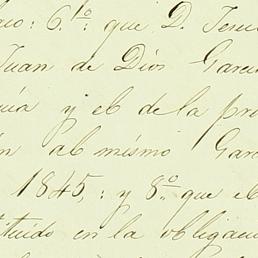 6.º: que D.
Juan de Dios Garcí
y el de la pro
al mismo Garc
1845,: y 8º. que el
tituido en la obligaci